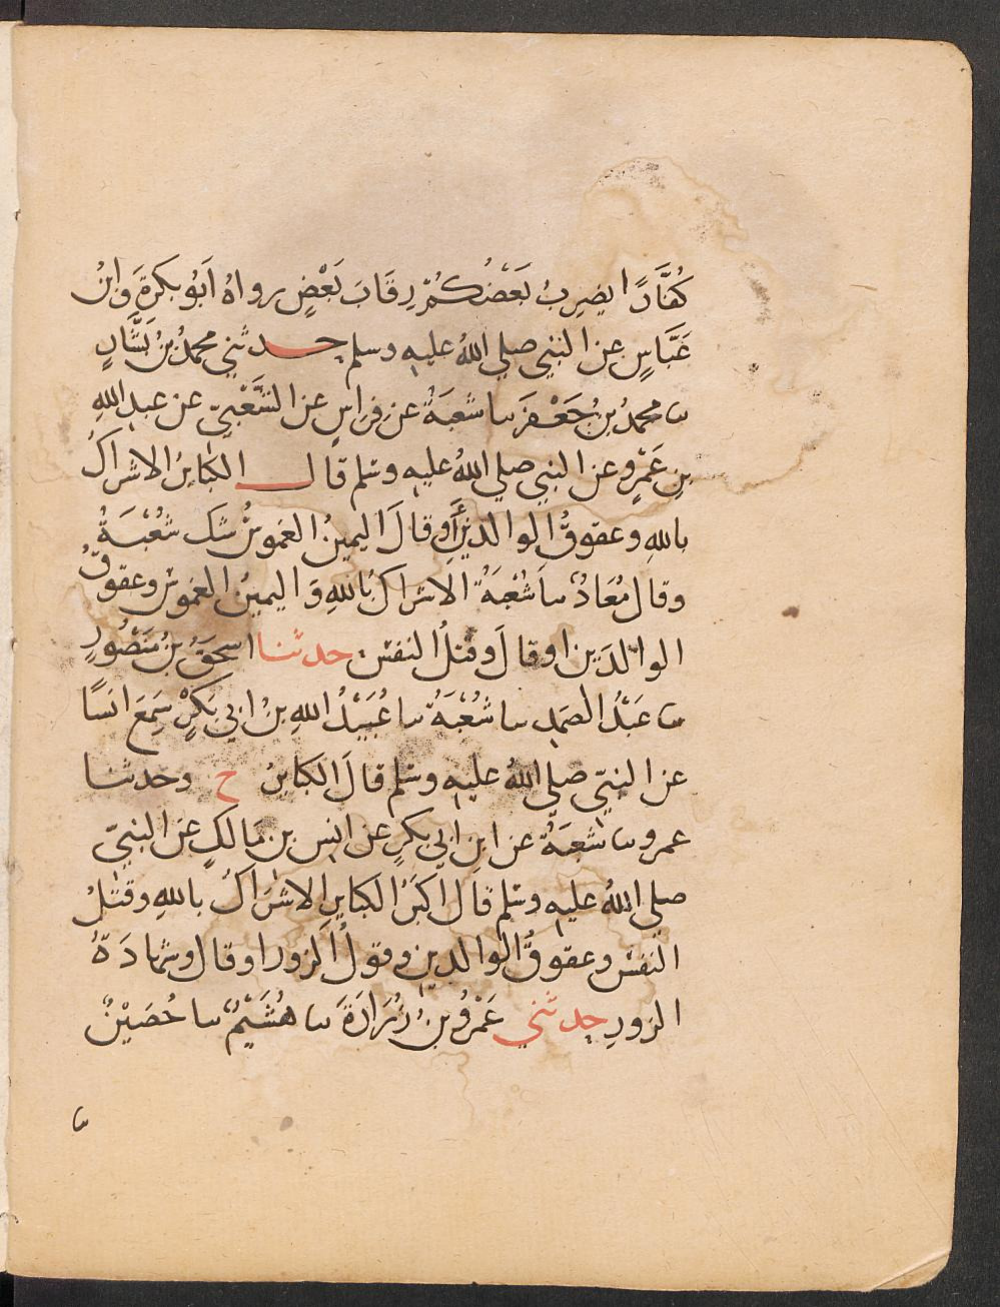 كُفَّارًا يضرِبُ بَعْضُكُمْ رِقَابَ بَعْضٍ رواهُ اَبُو بكرةَ وَابْنُ
عَبَّاسٍ عن النبي صلي اللهُ عليه وسلم حدثني محمدُ بنُ بَشَّارٍ
ثنا محمدُ بنُ جَعْفَرَ ثنا شعبَةُ عن فِراسٍ عن الشَّعْبيّ عن عبدِ اللهِ
بنِ عَمْرٍو عن النبي صلي اللهُ عليه وسلم قال الكبايرُ الاشراكُ
باللهِ وعقوقُ الوالدَيْنِ أَو قالَ اليمينُ الغموسُ شكَ شُعْبَةُ
وقال مُعَاذٌ ثنا شُعْبَةُ الاشراكُ باللهِ وَاليمينُ الغموسُ وعقوقُ
الوالدَين او قالَ وقتلُ النفسِ حدثنا اسحقُ بنُ مَنْصُورٍ
ثنا عَبْدُ الصمدِ ثنا شُعْبَةُ ثنا عُبَيْدُ اللهِ بنُ ابي بَكْرٍ سَمِعَ انَسًا
عن النبيّ صلي اللهُ عليه وسلم قالَ الكبايرُ ح وحدثنا
عمرو ثنا شعبَةُ عن ابنِ ابي بكرٍ عن انس بن مَالكٍ عن النبيّ
صلي اللهُ عليه وسلم قال اكبَرُ الكبايرِ الاشرَاكُ باللهِ وقتلُ
النفسِ وعقوقُ الوالدين وقولُ الزور او قال وشهادَةُ
الزورِ حدثني عَمْرُو بنُ زُرَارَةَ ثنا هُشَيْمٌ ثنا حُصَيْنٌ
ثنا